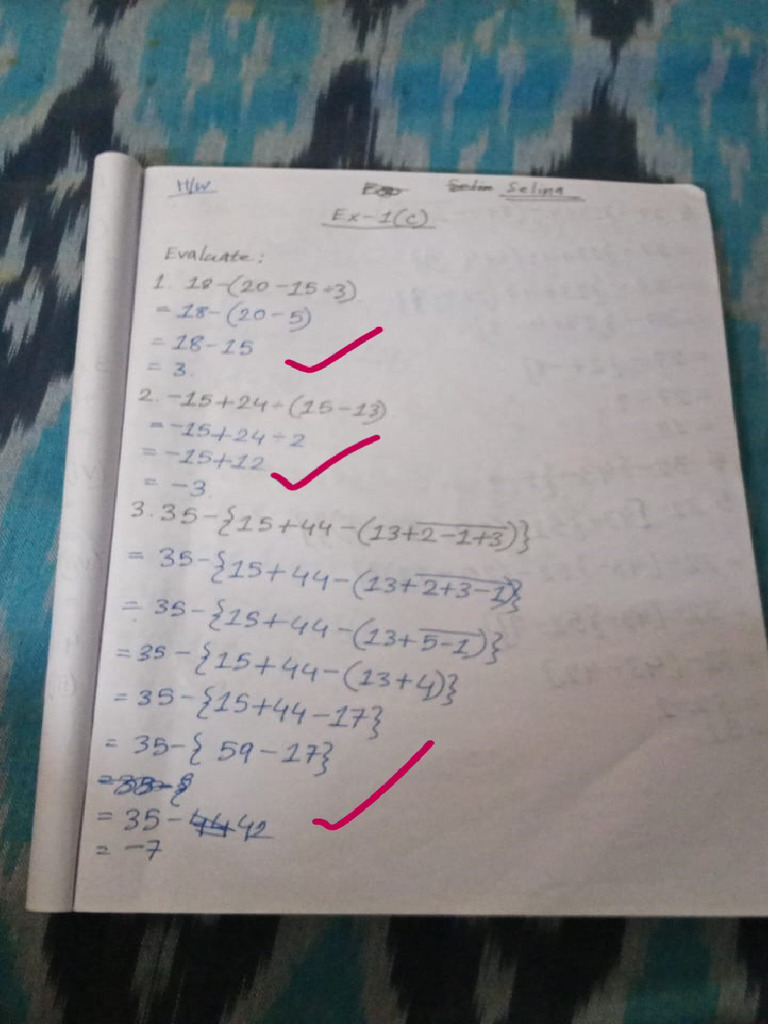 H/W Selina
Ex-1(c)
Evaluate:
1. 18-(20-15÷3)
= 18-(20-5)
= 18-15
= 3.
2. -15+24÷(15-13)
= -15+24÷2
= -15+12
= -3
3. 35-{15+44-(13+2-1+3)}
= 35-{15+44-(13+2+3-1)}
= 35-{15+44-(13+5-1)}
= 35-{15+44-(13+4)}
= 35-{15+44-17}
= 35-{59-17}
= 35-42
= -7